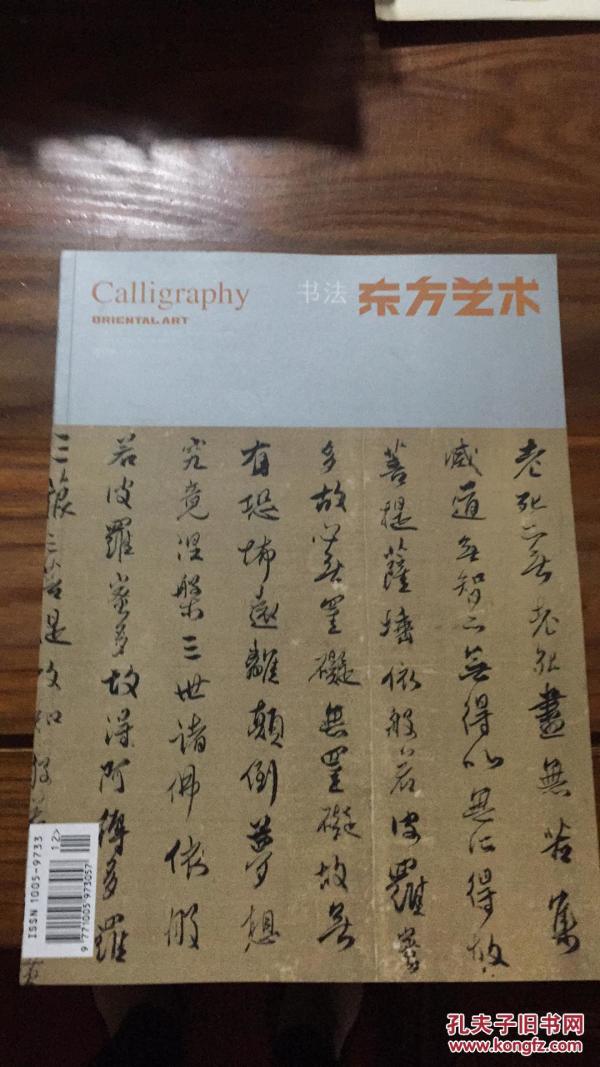 Calligraphy
ORIENTAL ART
书法 东方艺术
老死亦無老死盡無苦集
滅道無智亦無得以無所得故
菩提薩埵依般若波羅蜜
多故心無罣礙無罣礙故無
有恐怖遠離顛倒夢想
究竟涅槃三世諸佛依般
若波羅蜜多故得阿耨多羅
三藐三菩提故知般
ISSN 1005-9733
9 771005 973057
12>
孔夫子旧书网
www.kongfz.com